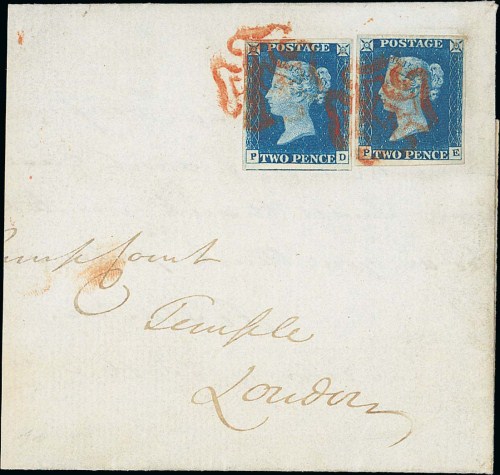 POSTAGE
TWO PENCE
P D
POSTAGE
TWO PENCE
P E
Court
Temple
London